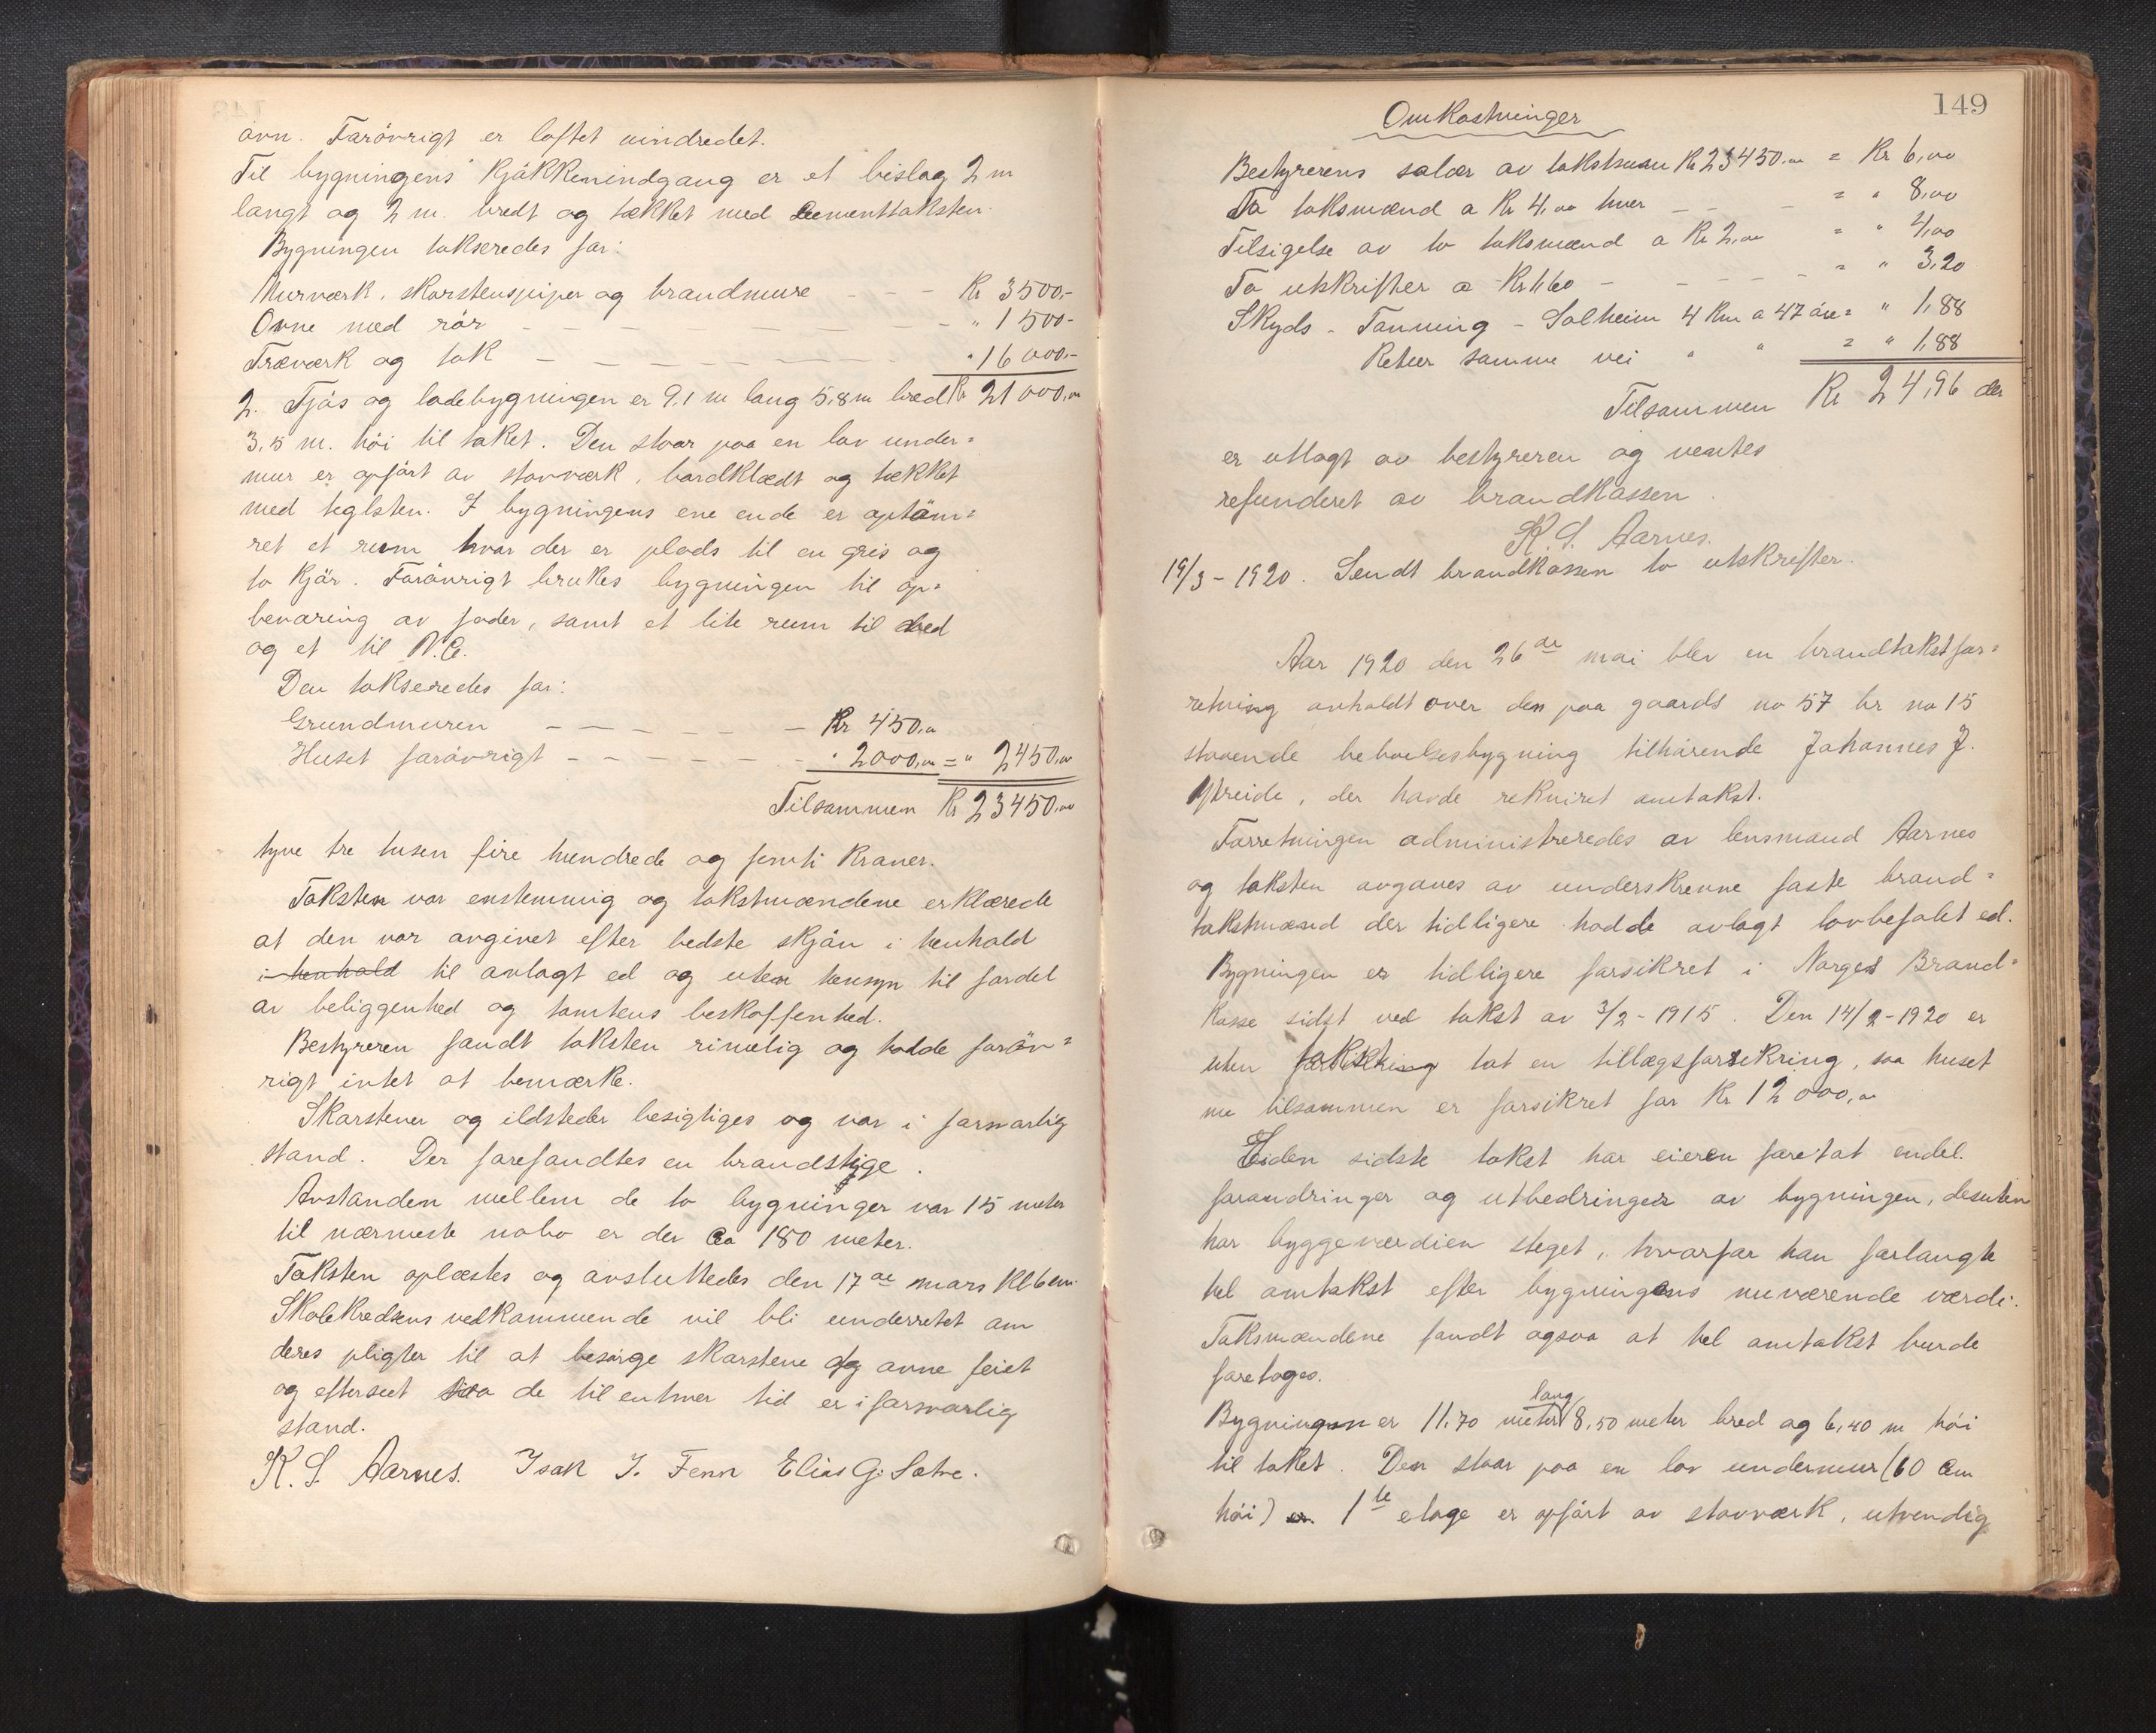 ovn. Forövrigt er loftet uindredet.
Til bygningens Kjökkenindgang er et bislag 2 m
langt og 2 m. bredt og tækket med Cementtaksten.
Bygningen takseredes for:
Murværk, skorstenspiper og brandmure - - - Kr 3500,-
Ovne med rör - - - - - " 1500-
Træværk og tak - - - - - " 16000,-
2. Fjös og ladebygningen er 9,1 m lang 5,8 m bred Kr 21000,00
3,5 m. höi til taket. Den staar paa en lav under=
mur er opfört av stavværk, bordklædt og tækket
med teglsten. I bygningens ene ende er optöm=
ret et rum hvor der er plads til en gris og
to Kjör. Forövrigt brukes bygningen til op=
bevaring av foder, samt et lite rum til ved
og et til W.C.
Den takseredes for:
Grundmuren - - - - - Kr 450,00
Huset forövrigt - - - - - " 2000,00 = " 2450,00
Tilsammen Kr 23450,00
tyve tre tusen fire hundrede og femti Kroner.
Taksten var enstemmig og takstmændene erklærede
at den var avgivet efter bedste skjön i henhold
i henhold til avlagt ed og uten hensyn til fordel
av beliggenhed og tomtens beskaffenhed.
Bestyreren fandt taksten rimelig og hadde foröv=
rigt intet at bemærke.
Skorstener og ildsteder besigtiges og var i forsvarlig
stand. Der forefandtes en brandstige.
Avstanden mellem de to bygninger var 15 meter
til nærmeste nabo er der Ca 180 meter.
Taksten oplæstes og avsluttedes den 17de mars Kl 6 em.
Skolekredsens vedkommende vil bli underrettet om
deres pligter til at besörge skorstene og ovne feiet
og efterseet saa de til enhver tid er i forsvarlig
stand.
K. S. Aarnes. Isak J. Fenn Elias G. Sætre.
149
Omkostninger
Bestyrerens salær av takstsum Kr 23450,00 = Kr 6,00
To taksmænd a Kr 4,00 hver - - - = " 8,00
Tilsigelse av to taksmænd a Kr 2,00 = " 4,00
To utskrifter a Kr 1,60 - - - - = " 3,20
Skyds - Tanning - Solheim 4 Km a 47 öre = " 1,88
Retur samme vei " " = " 1,88
Tilsammen Kr 24,96 der
er utlagt av bestyreren og ventes
refunderet av brandkassen.
K. S. Aarnes.
19/3 - 1920. Sendt brandkassen to utskrifter.
Aar 1920 den 26de mai blev en brandtakstfor=
retning avholdt over den paa gaards no 57 br no 15
staaende beboelsesbygning tilhörende Johannes J.
Ytreide, der havde rekviret omtakst.
Forretningen administreredes av lensmand Aarnes
og taksten avgaves av underskrevne faste brand=
takstmænd der tidligere hadde avlagt lovbefalet ed.
Bygningen er tidligere forsikret i Norges Brand=
kasse sidst ved takst av 3/2 - 1915. Den 14/2 - 1920 er
uten tat en tillægsforsikring, saa huset
nu tilsammen er forsikret for Kr 12000,00
Siden sidste takst har eieren foretat endel
forandringer og utbedringer av bygningen, desuten
har byggeværdien steget, hvorfor han forlangte
hel omtakst efter bygningens nuværende værdi.
Taksmændene fandt ogsaa at hel omtakst burde
foretages.
Bygningen er 11,70 meter lang 8,50 meter bred og 6,40 m höi
til taket. Den staar paa en lav undermur (60 Cm
höi) er. 1ste etage er opfört av stavværk, utvendig